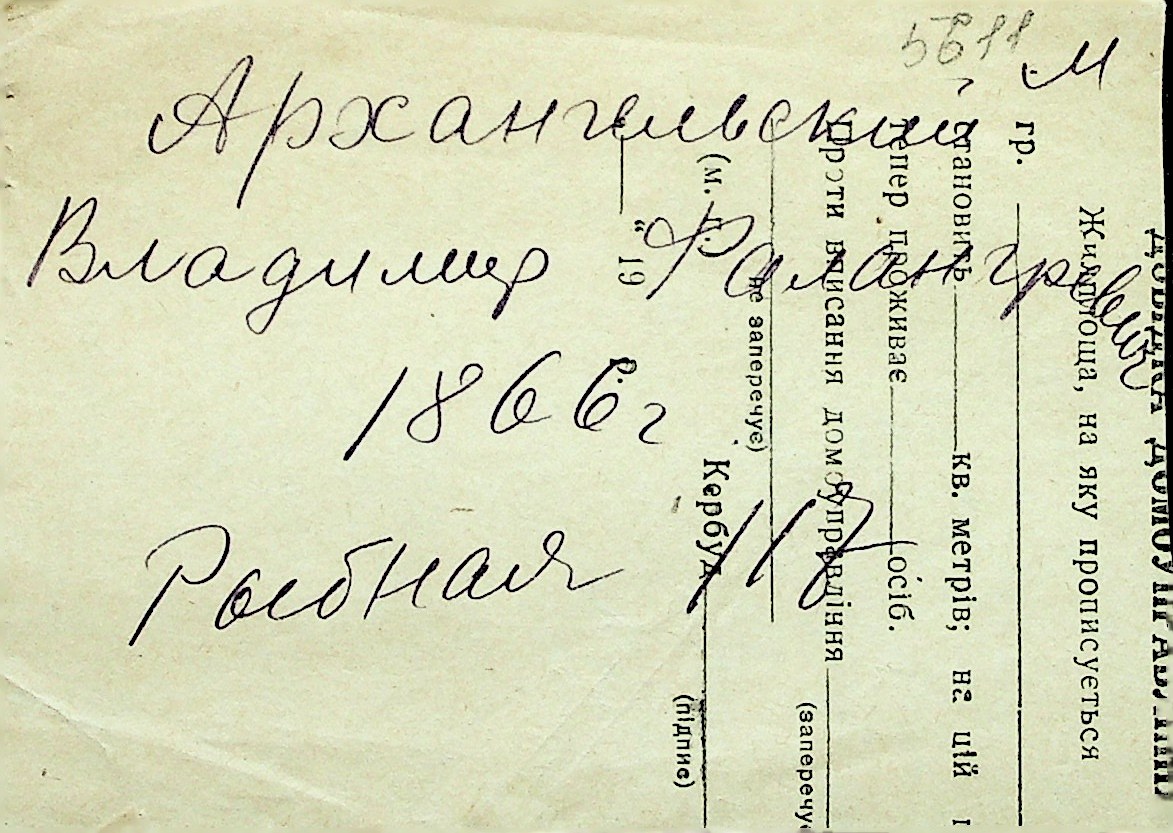 5611
Архангельский М
Владимир
1866 г
Рыбная 117
ДОВІДКА ДОМОУПРАВЛІННЯ
Житлоща, на яку прописується
гр.
становить кв. метрів; на цій
тепер проживає осіб.
Проти вписання домоуправління
(заперечує
не заперечує)
Кербуд
(підпис)
(м. п.)
“ 19 р.